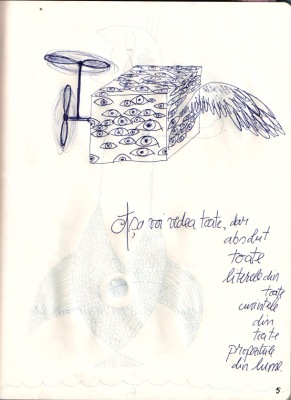 Așa voi vedea toate, dar
absolut
toate
literele din
toate
cuvintele
din
toate
propozițiile
din lume.
5